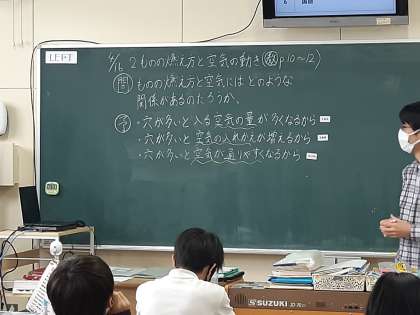 4/16 2ものの燃え方と空気の動き(教p10~12)
問 ものの燃え方と空気にはどのような
関係があるのだろうか。
予 ・穴が多いと入る空気の量が多くなるから
・穴が多いと空気の入れかえが増えるから
・穴が多いと空気が通りやすくなるから
6 国語
SUZUKI